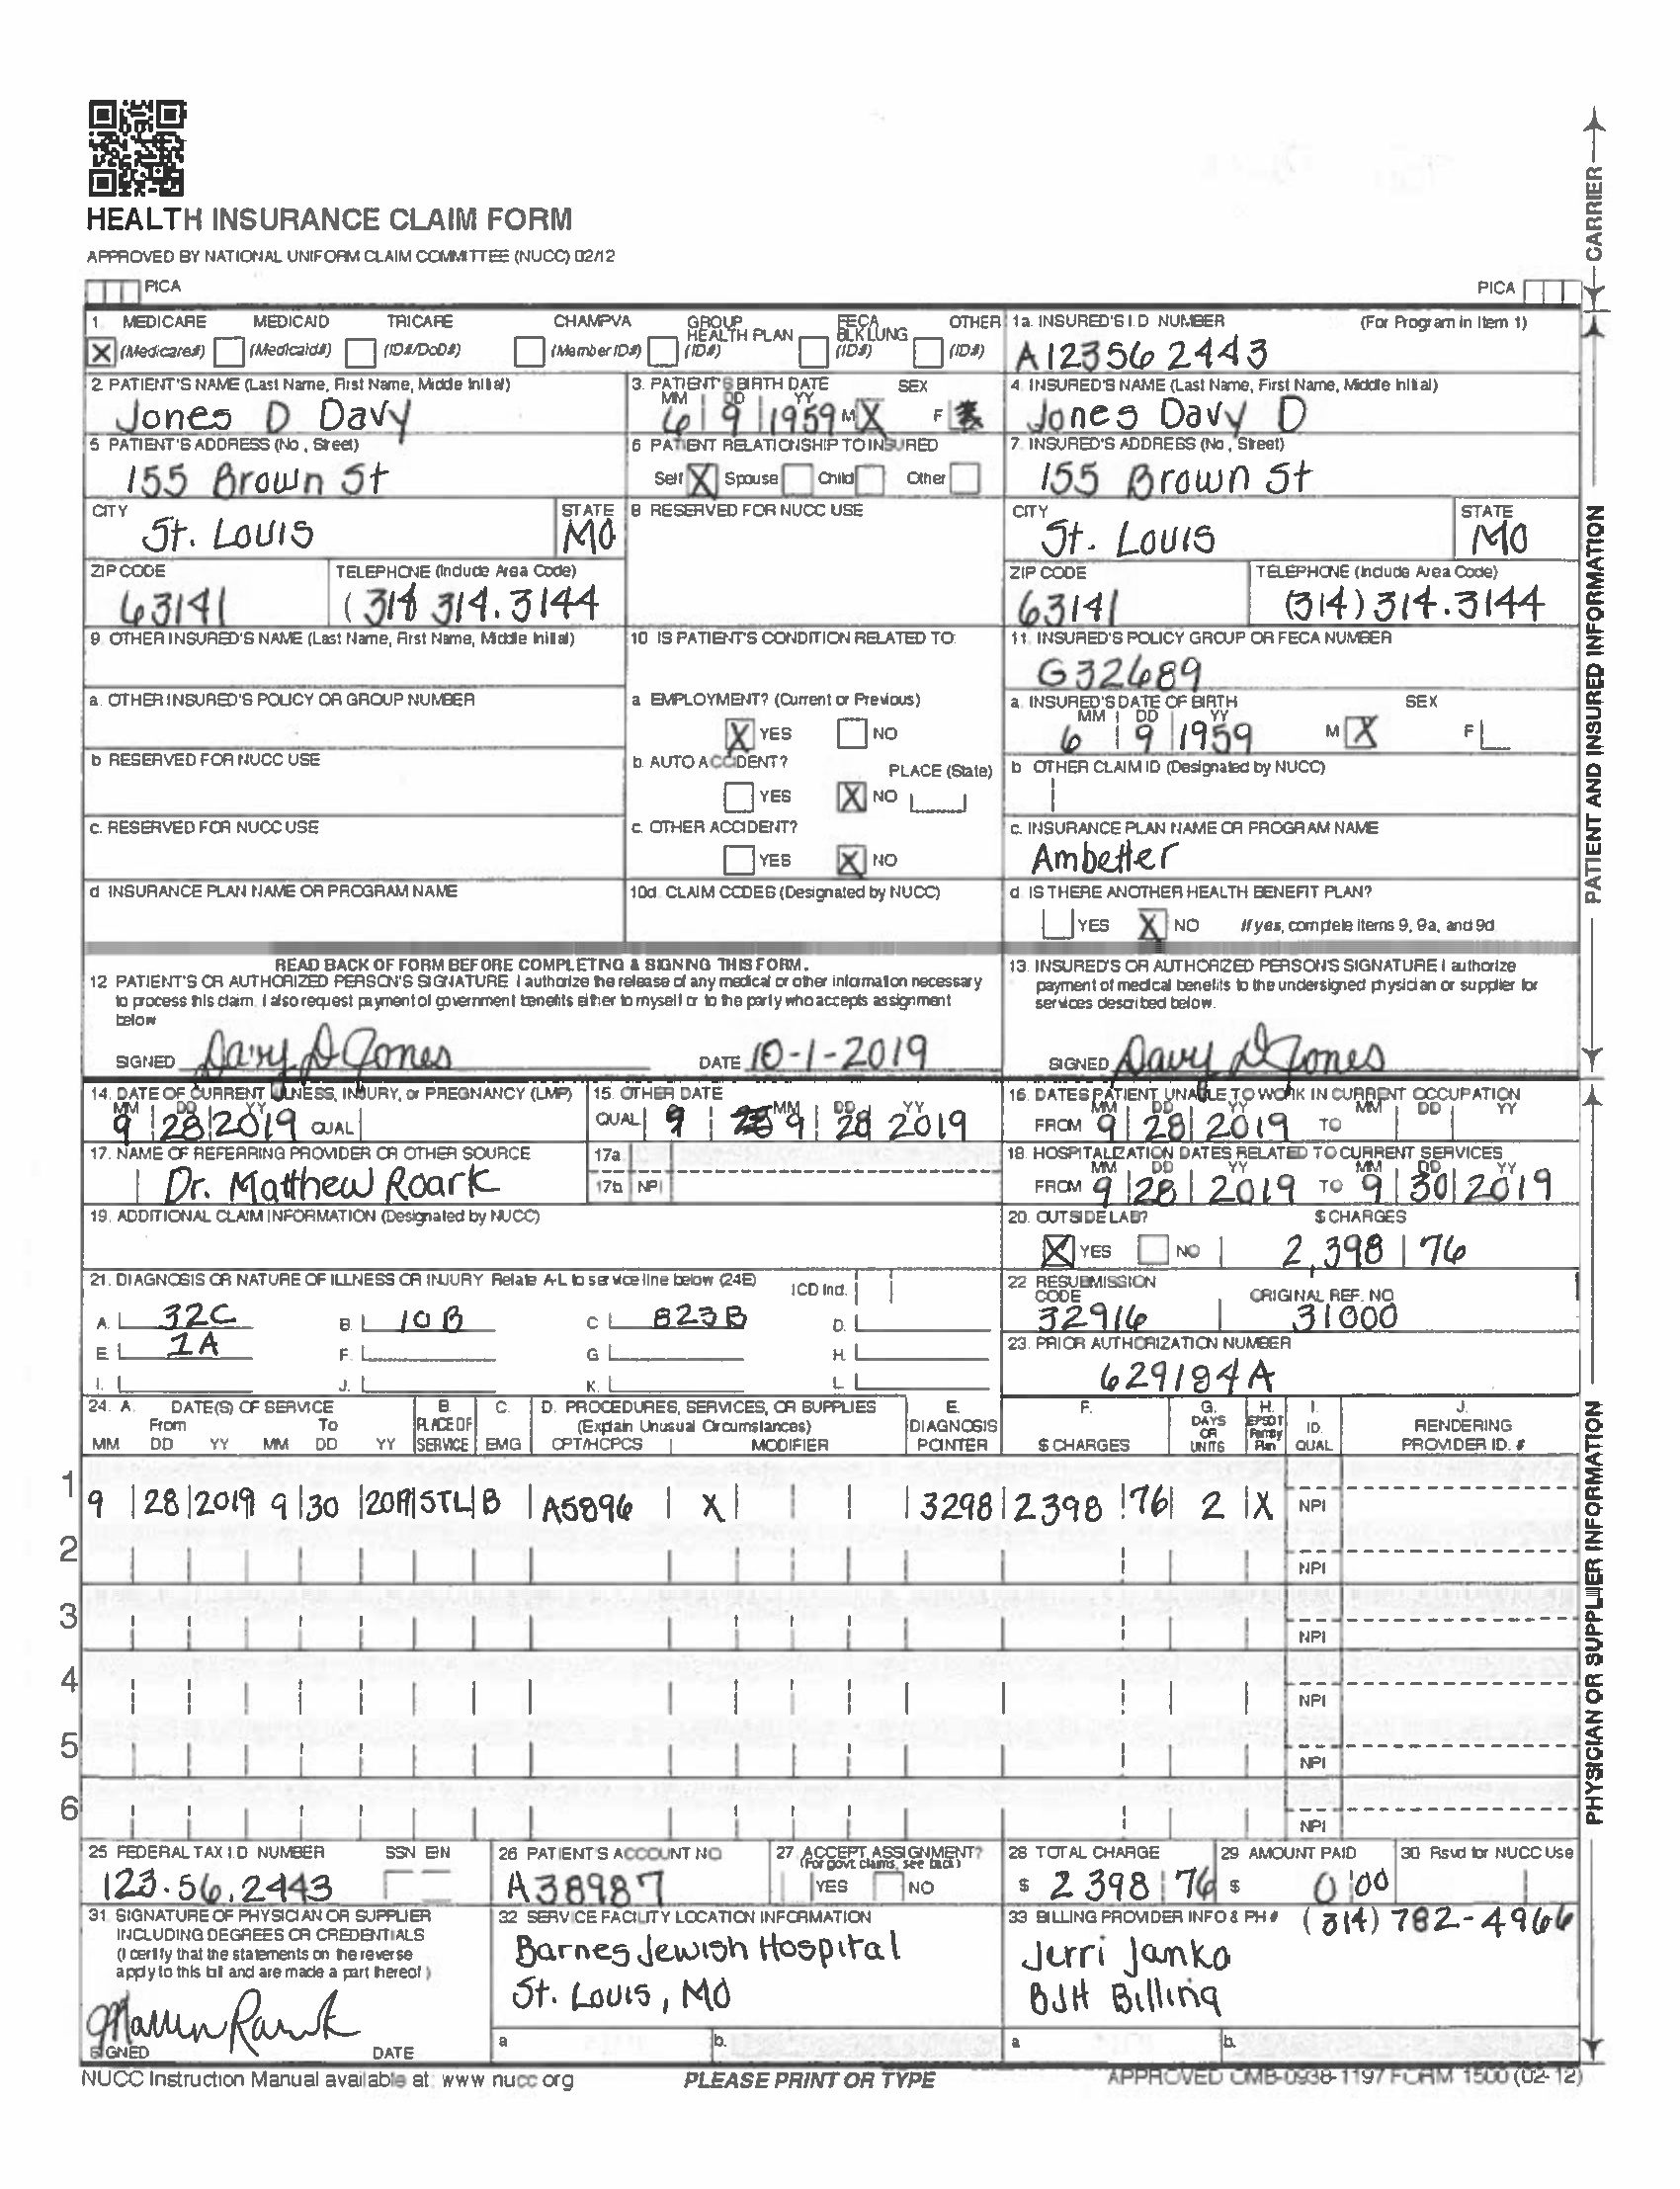 HEALTH INSURANCE CLAIM FORM
APPROVED BY NATIONAL UNIFORM CLAIM COMMITTEE (NUCC) 02/12
PICA PICA
CARRIER
1. MEDICARE MEDICAID TRICARE CHAMPVA GROUP HEALTH PLAN FECA BLK LUNG OTHER
X (Medicare#) (Medicaid#) (ID#/DoD#) (Member ID#) (ID#) (ID#) (ID#)
1a. INSURED'S I.D NUMBER (For Program in Item 1)
A123562443
2. PATIENT'S NAME (Last Name, First Name, Middle Initial)
Jones D Davy
3. PATIENT'S BIRTH DATE SEX
MM DD YY
6 9 1959 M X F
4. INSURED'S NAME (Last Name, First Name, Middle Initial)
Jones Davy D
5 PATIENT'S ADDRESS (No, Street)
155 Brown St
6 PATIENT RELATIONSHIP TO INSURED
Self X Spouse Child Other
7. INSURED'S ADDRESS (No, Street)
155 Brown St
CITY STATE
St. Louis MO
8 RESERVED FOR NUCC USE
CITY STATE
St. Louis MO
ZIP CODE TELEPHONE (Include Area Code)
63141 (314 314.3144
ZIP CODE TELEPHONE (Include Area Code)
63141 (314) 314.3144
9. OTHER INSURED'S NAME (Last Name, First Name, Middle Initial)
10 IS PATIENT'S CONDITION RELATED TO:
11. INSURED'S POLICY GROUP OR FECA NUMBER
G32689
a. OTHER INSURED'S POLICY OR GROUP NUMBER
a EMPLOYMENT? (Current or Previous)
X YES NO
a. INSURED'S DATE OF BIRTH SEX
MM DD YY
6 9 1959 M X F
b RESERVED FOR NUCC USE
b. AUTO ACCIDENT? PLACE (State)
YES X NO
b OTHER CLAIM ID (Designated by NUCC)
c. RESERVED FOR NUCC USE
c. OTHER ACCIDENT?
YES X NO
c. INSURANCE PLAN NAME OR PROGRAM NAME
Ambetter
d INSURANCE PLAN NAME OR PROGRAM NAME
10d. CLAIM CODES (Designated by NUCC)
d. IS THERE ANOTHER HEALTH BENEFIT PLAN?
YES X NO If yes, complete items 9, 9a, and 9d
PATIENT AND INSURED INFORMATION
READ BACK OF FORM BEFORE COMPLETING & SIGNING THIS FORM.
12 PATIENT'S OR AUTHORIZED PERSON'S SIGNATURE I authorize the release of any medical or other information necessary
to process this claim. I also request payment of government benefits either to myself or to the party who accepts assignment
below
SIGNED Davy D Jones DATE 10-1-2019
13. INSURED'S OR AUTHORIZED PERSON'S SIGNATURE I authorize
payment of medical benefits to the undersigned physician or supplier for
services described below.
SIGNED Davy D Jones
14. DATE OF CURRENT ILLNESS, INJURY, or PREGNANCY (LMP)
MM DD YY
9 28 2019 QUAL
15. OTHER DATE
MM DD YY
QUAL 9 9 28 2019
16. DATES PATIENT UNABLE TO WORK IN CURRENT OCCUPATION
MM DD YY MM DD YY
FROM 9 28 2019 TO
17. NAME OF REFERRING PROVIDER OR OTHER SOURCE
Dr. Matthew Roark
17a
17b NPI
18. HOSPITALIZATION DATES RELATED TO CURRENT SERVICES
MM DD YY MM DD YY
FROM 9 28 2019 TO 9 30 2019
19. ADDITIONAL CLAIM INFORMATION (Designated by NUCC)
20. OUTSIDE LAB? $ CHARGES
X YES NO 2,398 76
21. DIAGNOSIS OR NATURE OF ILLNESS OR INJURY Relate A-L to service line below (24E) ICD Ind.
A. 32C B. 10B C. 823B D.
E. 1A F. G. H.
I. J. K. L.
22 RESUBMISSION CODE ORIGINAL REF. NO
32916 31000
23. PRIOR AUTHORIZATION NUMBER
629184A
24. A. DATE(S) OF SERVICE B. C. D. PROCEDURES, SERVICES, OR SUPPLIES E. F. G. H. I. J.
From To PLACE OF (Explain Unusual Circumstances) DIAGNOSIS DAYS OR EPSDT Family ID. RENDERING
MM DD YY MM DD YY SERVICE EMG CPT/HCPCS MODIFIER POINTER $ CHARGES UNITS Plan QUAL. PROVIDER ID. #
1 9 28 2019 9 30 2019 STL B A5896 X 3298 2398 76 2 X NPI
2 NPI
3 NPI
4 NPI
5 NPI
6 NPI
PHYSICIAN OR SUPPLIER INFORMATION
25 FEDERAL TAX I.D NUMBER SSN EIN
123.56.2443
26 PATIENT'S ACCOUNT NO
A38987
27 ACCEPT ASSIGNMENT?
(For govt. claims, see back)
YES NO
28 TOTAL CHARGE
$ 2398 76
29 AMOUNT PAID
$ 0 00
30 Rsvd for NUCC Use
31. SIGNATURE OF PHYSICIAN OR SUPPLIER
INCLUDING DEGREES OR CREDENTIALS
(I certify that the statements on the reverse
apply to this bill and are made a part thereof)
SIGNED DATE
32 SERVICE FACILITY LOCATION INFORMATION
Barnes Jewish Hospital
St. Louis, MO
a b.
33 BILLING PROVIDER INFO & PH # (314) 782-4966
Jerri Janko
BJH Billing
a b.
NUCC Instruction Manual available at: www nucc org PLEASE PRINT OR TYPE APPROVED OMB-0938-1197 FORM 1500 (02-12)